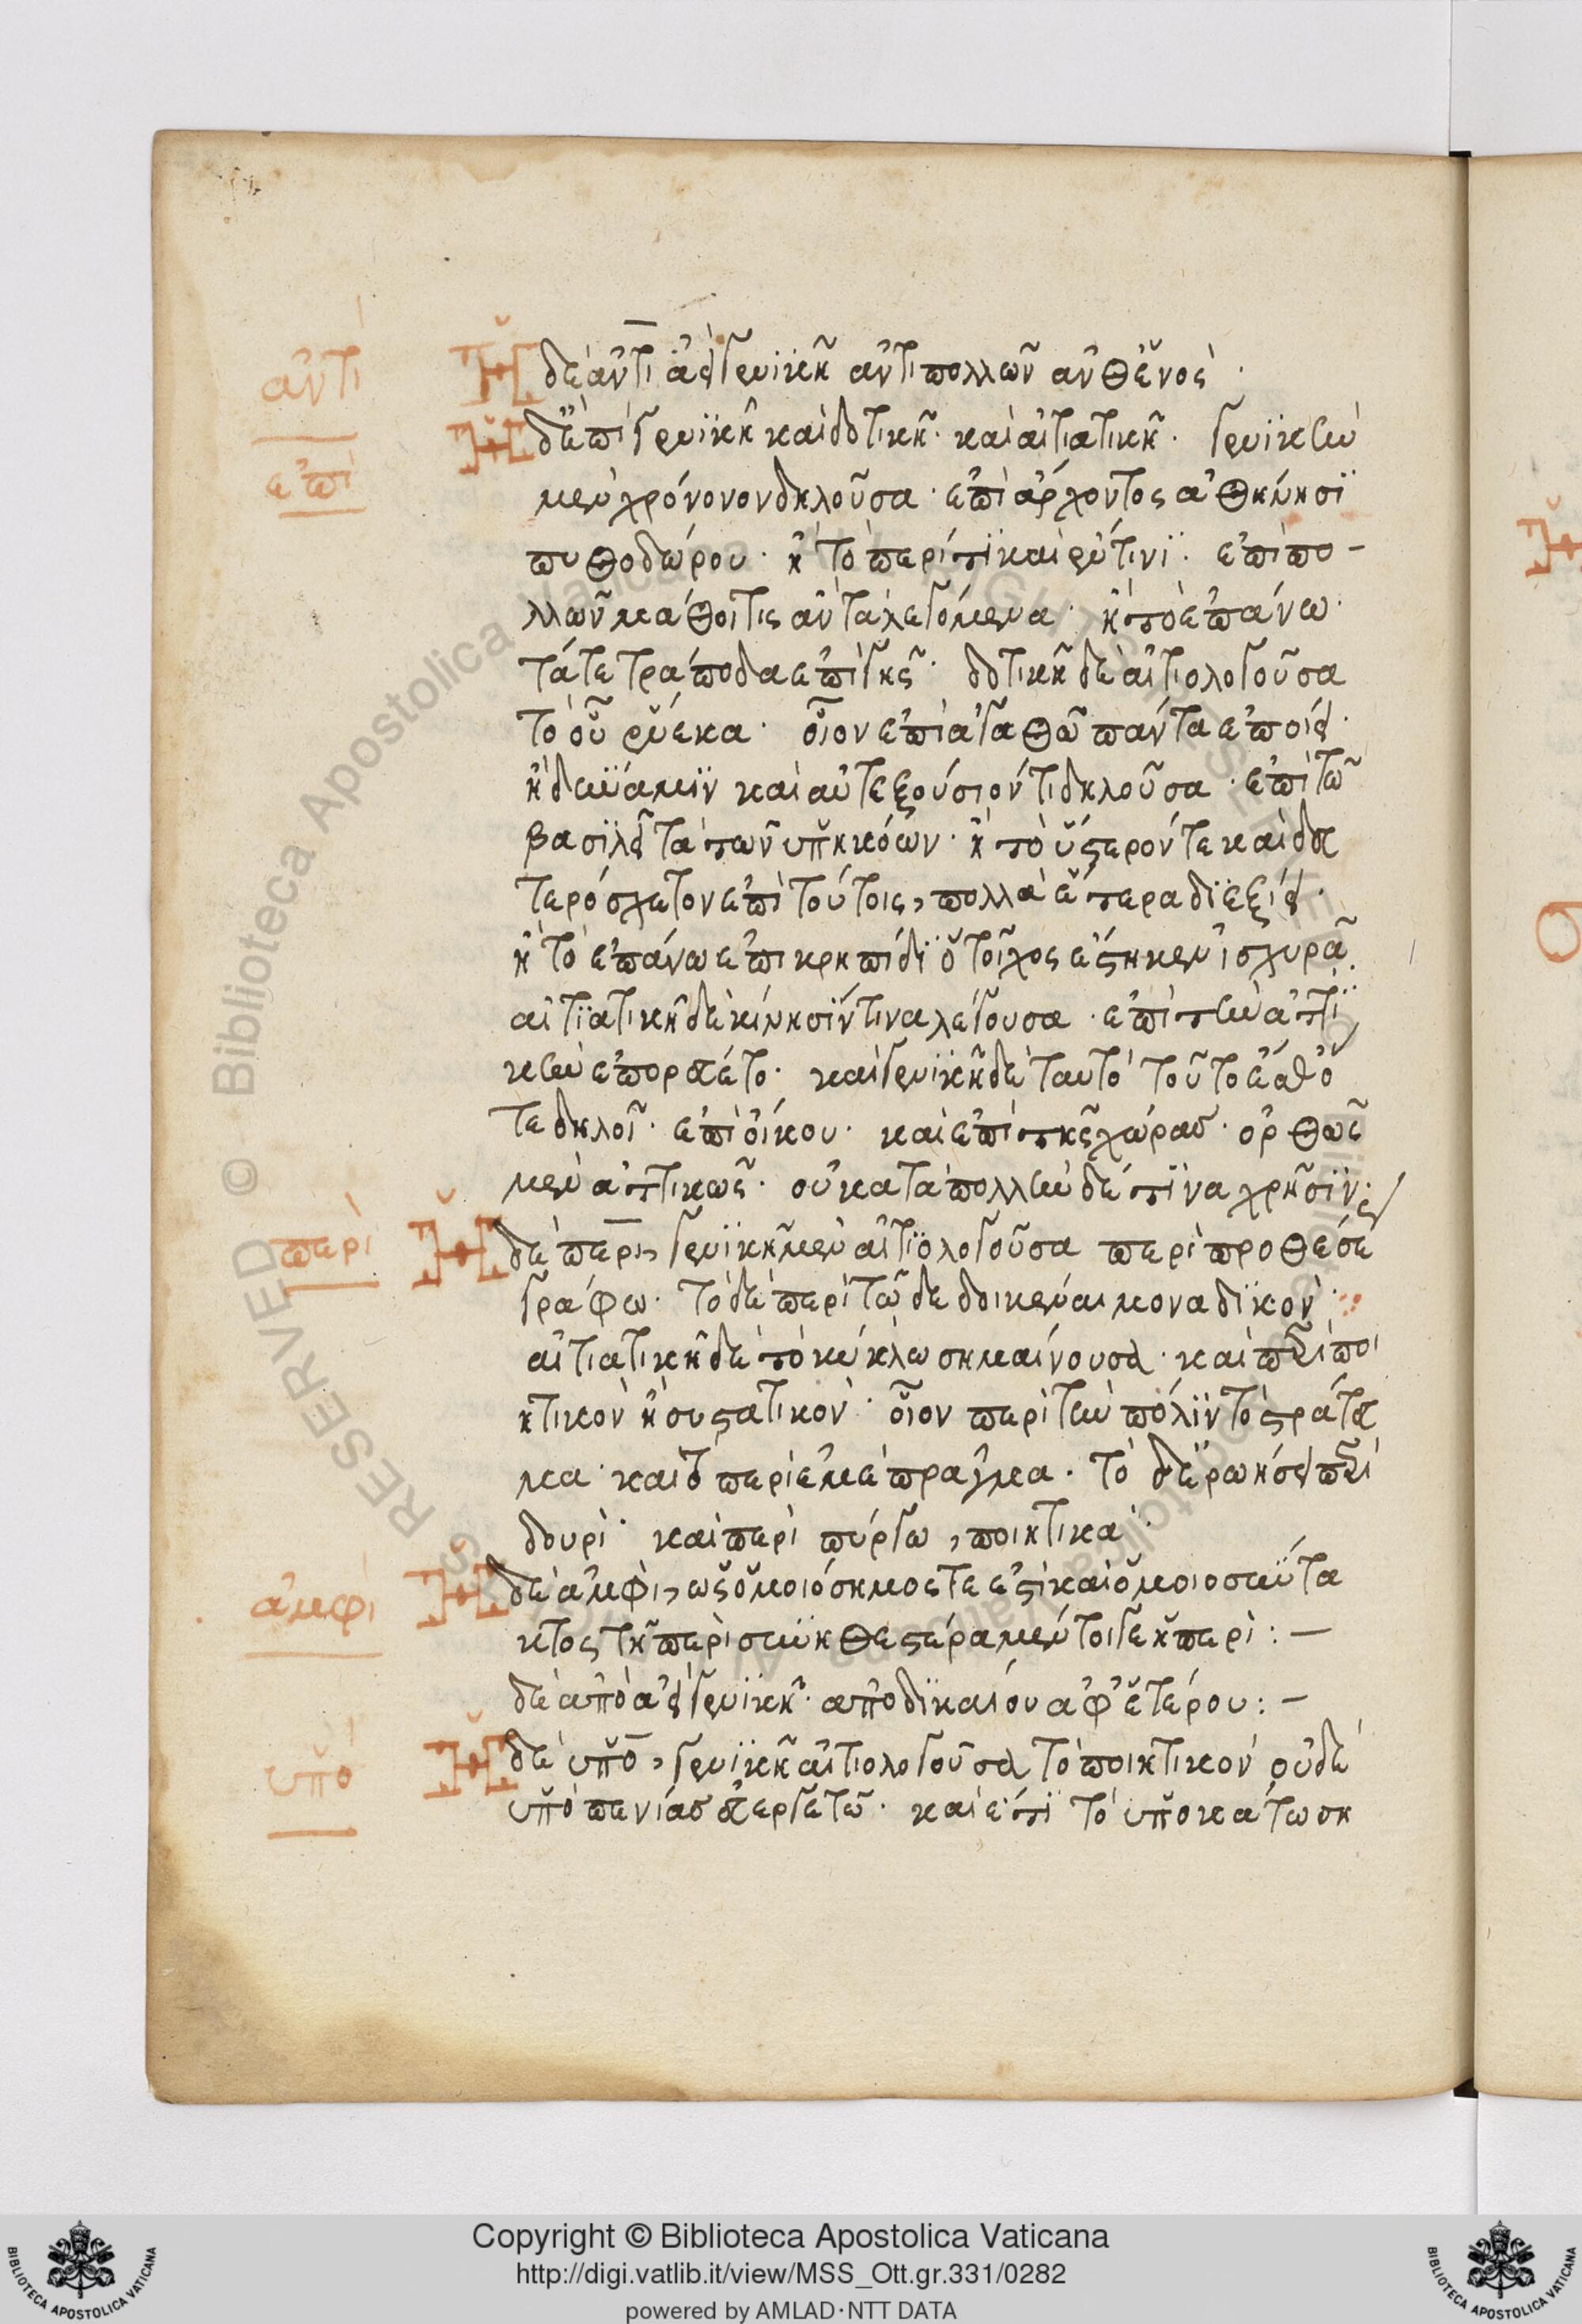 ἀντὶ
Ἡ δὲ ἀντὶ ἀεὶ γενικῆ ἀντιπολλῶν ἀνθἑνος ·
ἐπὶ
Ἡ δὲ ἐπὶ γενϊκῆ καὶ δοτικῆ · καὶ αἰτιατικῆ · γενϊκὴν
μὲν χρόνον δηλοῦσα · ἐπὶ ἄρχοντος ἀθήνησϊ
πυθοδώρου · ἢ τὸ περί τϊ καὶ ἔν τινϊ · ἐπὶ πο-
λλῶν μάθοι τις ἂν τὰ λεγόμενα · ἢ τὸ ἐπάνω ·
τὰ τετράποδα ἐπὶ γῆς · δοτικῆ δὲ αἰτιολογοῦσα
τὸ οὗ ἕνεκα · οἷον ἐπὶ ἀγαθῶ πάντα ἐποίει ·
ἢ δύναμϊν καὶ αὐτεξούσιόν τι δηλοῦσα · ἐπὶ τῶ
βασϊλεῖ τὰ τῶν ὑπηκόων · ἢ τὸ ὕστερόν τε καὶ δευ
τερόσχετον ἐπὶ τούτοις, πολλὰ ἕτερα δϊεξίει ·
ἢ τὸ ἐπάνω ἐπὶ κρηπίδϊ ὁ τοῖχος ἕστηκεν ἰσχυρᾶ.
αἰτϊατικῆ δὲ κίνησϊν τινα λέγουσα · ἐπὶ τὴν ἀττϊ
κὴν ἐπορεύετο · καὶ γενϊκῆ δὲ ταυτὸ τοῦτο
τε δηλοῖ · ἐπὶ οἴκου · καὶ ἐπὶ τῆς χώρας · ὀρθῶς
μὲν ἀττικῶς · οὐ κατὰ πολλὴν δέ τϊνα χρῆσϊν ·
περὶ
Ἡ δὲ περὶ, γενϊκῆ μὲν αἰτϊολογοῦσα περὶ προθέσε
γράφω · τὸ δὲ περὶ τῶ δεδοικέναι μοναδϊκὸν ·
αἰτιατικῆ δὲ τὸ κύκλω σημαίνουσα · καὶ
ητικὸν ἢ συστατικὸν · οἷον περὶ τὴν πόλϊν τὸ στράτευ
μα · καὶ τὸ περὶ ἐμὲ πρᾶγμα · τὸ δὲ
δουρὶ · καὶ περὶ πύργω, ποιητικὰ ·
ἀμφὶ
Ἡ δὲ ἀμφὶ, ὡς ὁμοιόσημός τε ἐστὶ καὶ ὁμοιοσύντα
κτος τῆ περὶ συνηθεστέρα μέν τοι γε ἡ περὶ : —
δὲ ἀπὸ ἀεὶ γενϊκῆ · ἀπὸ δϊκαίου ἀφ᾽ ἑτέρου : —
ὑπὸ
Ἡ δὲ ὑπὸ, γενϊκῆ αἰτιολογοῦσα τὸ ποιητικὸν οὐδὲ
ὑπὸ πενίας εὐεργετῶ · καὶ ἔτϊ τὸ ὑποκάτω ση
Copyright © Biblioteca Apostolica Vaticana
http://digi.vatlib.it/view/MSS_Ott.gr.331/0282
powered by AMLAD·NTT DATA
BIBLIOTECA APOSTOLICA VATICANA
BIBLIOTECA APOSTOLICA VATICANA